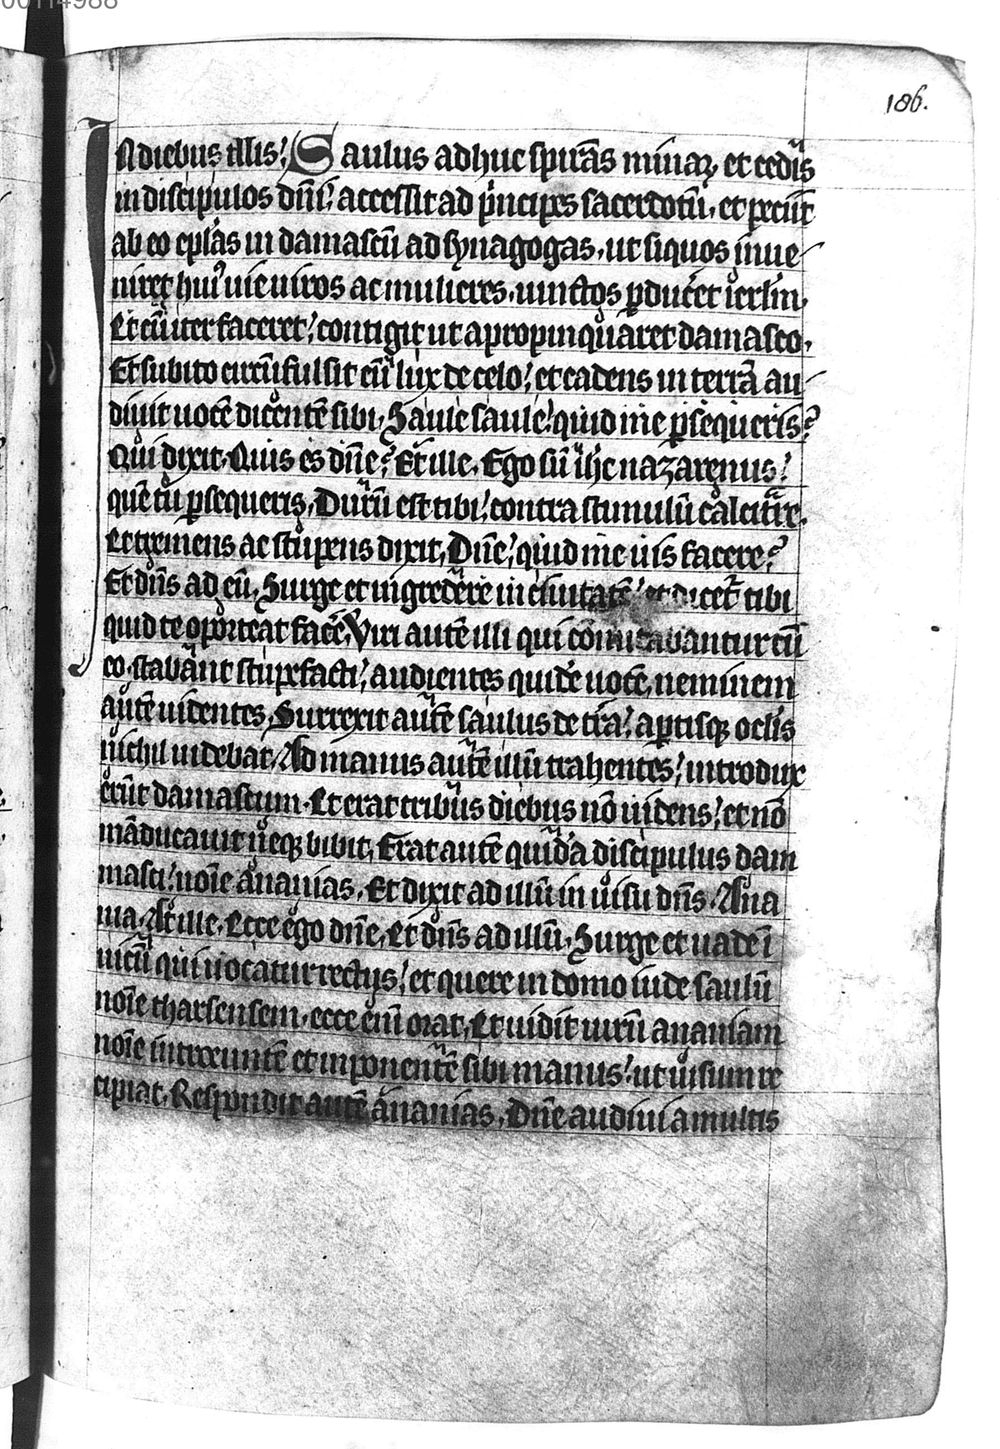 00114988
186.
In diebus illis. Saulus adhuc spirās minaꝝ et cedis
in discipulos dn̄i. accessit ad pͥncipes sacerdotū. et peciit
ab eo epl̄as in damascū ad synagogas. ut siquos inue
niret huiꝰ uie uiros ac mulieres. uinctos ꝑducēt ierl̄m.
Et cū iter faceret. contigit ut apropinquaret damasco.
Et subito circūfulsit eū lux de celo. et cadens in terrā au
diuit uocē dicentē sibi. Saule saule. quid me ꝑsequeris?
Qui dixit. Quis es dn̄e? Et ille. Ego sū ih̄c nazarenus.
quē tu ꝑsequeris. Durū est tibi. contra stimulū calcitͣre.
Et tremens ac stupens dixit. Dn̄e. quid me uis facere?
Et dn̄s ad eū. Surge et ingredere in ciuitatē et dicet̄ tibi
quid te oporteat facē. Viri autē illi qui comitabantur cū
eo. stabant stupefacti. audientes quidē uocē. neminem
autē uidentes. Surrexit autē saulus de tr̄a. aꝑtisqꝫ ocl̄is
nichil uidebat. Ad manus autē illū trahentes. introdux
erūt damascum. Et erat tribus diebus nō uidens. et nō
māducauit neqꝫ bibit. Erat autē quidā discipulus dam
masci. noīe ananias. Et dixit ad illū in uisu dn̄s. Ana
nia. At ille. Ecce ego dn̄e. Et dn̄s ad illū. Surge et uade ī
uicū qui uocatur rectus. et quere in domo iude saulū
noīe tharsensem. ecce eni orat. Et uidit uirū ananiam
noīe introeuntē et inponentē sibi manus. ut uisum re
cipiat. Respondit autē ananias. Dn̄e audiui a multis